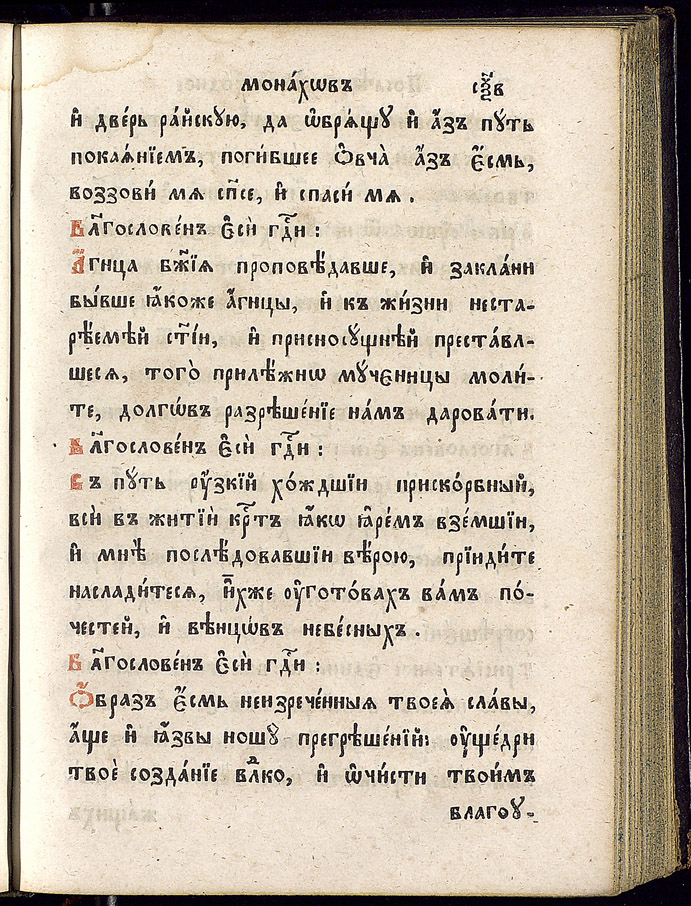 мона́хѡвъ сѯ҃в
и҆ две́рь ра́йскꙋю, да ѡ҆брѧ́щꙋ и҆ а҆́зъ пꙋ́ть
покаѧ́нїемъ, поги́бшее Ѻ҆вча̀ а҆́зъ Є҆́смь,
воззови́ мѧ сп҃се, и҆ спаси́ мѧ .
Бл҃гослове́нъ Є҆сѝ гд҇и :
А҆́гнца бж҃їѧ проповѣ́давше, и҆ закла́ни
бы́вше ꙗ҆́коже а҆́гнцы, и҆ къ жи́зни неста-
рѣ́емѣй ст҃і́и, и҆ присносꙋ́щнѣй преста́вл-
шесѧ, того̀ прилѣ́жнѡ мꙋ́чєницы моли́-
те, долгѡ́въ разрѣше́нїе на́мъ дарова́ти.
Бл҃гослове́нъ Є҆сѝ гд҇и :
Въ пꙋ́ть ᲂу҆́зкїй хо́ждшїи приско́рбный,
всѝ въ житїѝ крⷭ҇тъ ꙗ҆́кѡ ꙗ҆ре́мъ взе́мшїи,
и҆ мнѣ̀ послѣ́довавшїи вѣ́рою, прїиди́те
наслади́тесѧ, и҆́хже ᲂу҆гото́вахъ ва́мъ по́-
честей, и҆ вѣнцѡ́въ небе́сныхъ .
Бл҃гослове́нъ Є҆сѝ гд҇и :
Ѻ҆́бразъ Є҆́смь неизрече́нныѧ твоеѧ̀ сла́вы,
а҆́ще и҆ ꙗ҆́звы ношꙋ̀ прегрѣше́нїй: ᲂу҆ще́дри
твоѐ созда́нїе влⷣко, и҆ ѡ҆чи́сти твои́мъ
благоꙋ-